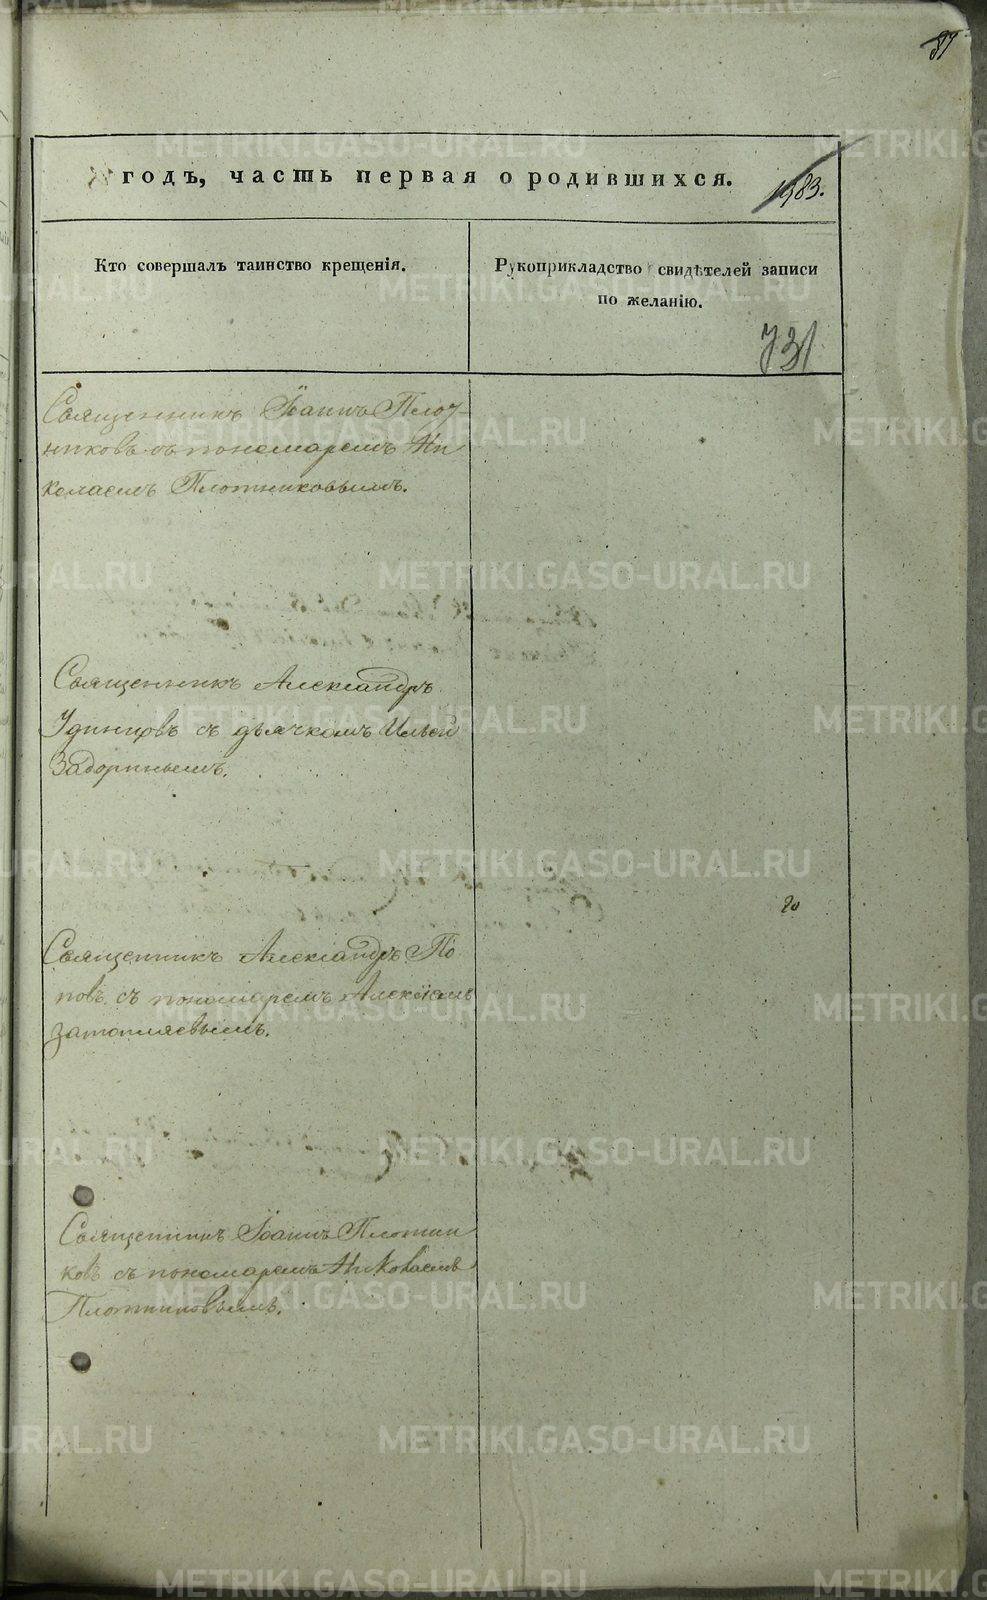 87
годъ, часть первая о родившихся.
183.
Кто совершалъ таинство крещенія.
Рукоприкладство свидѣтелей записи
по желанію.
731
Священникъ Іоаннъ Плот-
никовъ съ пономаремъ Ни
колаемъ Плотниковымъ.
Священникъ Александръ
Удинцовъ съ дьячкомъ Ильей
Задоринымъ.
Священникъ Александръ По
повъ съ пономаремъ Алексіемъ
Затопляевымъ.
Священникъ Іоаннъ Плотни
ковъ съ пономаремъ Николаемъ
Плотниковымъ.
METRIKI.GASO-URAL.RU